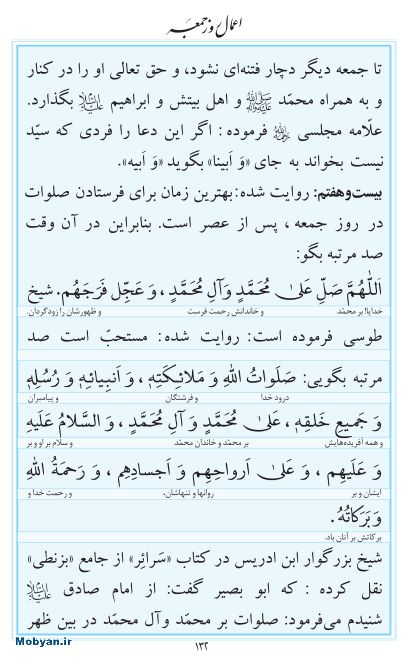 اعمال روز جمعه
تا جمعه دیگر دچار فتنه‌ای نشود، و حق تعالی او را در کنار
و به همراه محمّد ﷺ و اهل بیتش و ابراهیم علیهم‌السلام بگذارد.
علّامه مجلسی ره فرموده: اگر این دعا را فردی که سیّد
نیست بخواند به جای «وَ اَبینا» بگوید «وَ اَبیه».
بیست‌وهفتم: روایت شده: بهترین زمان برای فرستادن صلوات
در روز جمعه، پس از عصر است. بنابراین در آن وقت
صد مرتبه بگو:
اَللّٰهُمَّ صَلِّ عَلیٰ مُحَمَّدٍ وَآلِ مُحَمَّدٍ، وَ عَجِّل فَرَجَهُم. شیخ
خدایا! بر محمّد و خاندانش رحمت فرست و ظهورشان را زود گردان.
طوسی فرموده است: روایت شده: مستحبّ است صد
مرتبه بگویی: صَلَواتُ اللهِ وَ مَلائِکَتِهِ، وَ اَنبِیائِهِ وَ رُسُلِهِ
درود خدا و فرشتگان و پیامبران
وَ جَمیعِ خَلقِهِ، عَلیٰ مُحَمَّدٍ وَ آلِ مُحَمَّدٍ، وَ السَّلامُ عَلَیهِ
و همه آفریده‌هایش بر محمّد و خاندان محمّد و سلام بر او و بر
وَ عَلَیهِم، وَ عَلیٰ اَرواحِهِم وَ اَجسادِهِم، وَ رَحمَةُ اللهِ
ایشان و بر روانها و تنهاشان، و رحمت خدا و
وَ بَرَکاتُهُ.
برکاتش بر آنان باد.
شیخ بزرگوار ابن ادریس در کتاب «سَرائِر» از جامع «بزنطی»
نقل کرده: که ابو بصیر گفت: از امام صادق علیه‌السلام
شنیدم می‌فرمود: صلوات بر محمّد وآل محمّد در بین ظهر
۱۳۲
Mobyan.ir